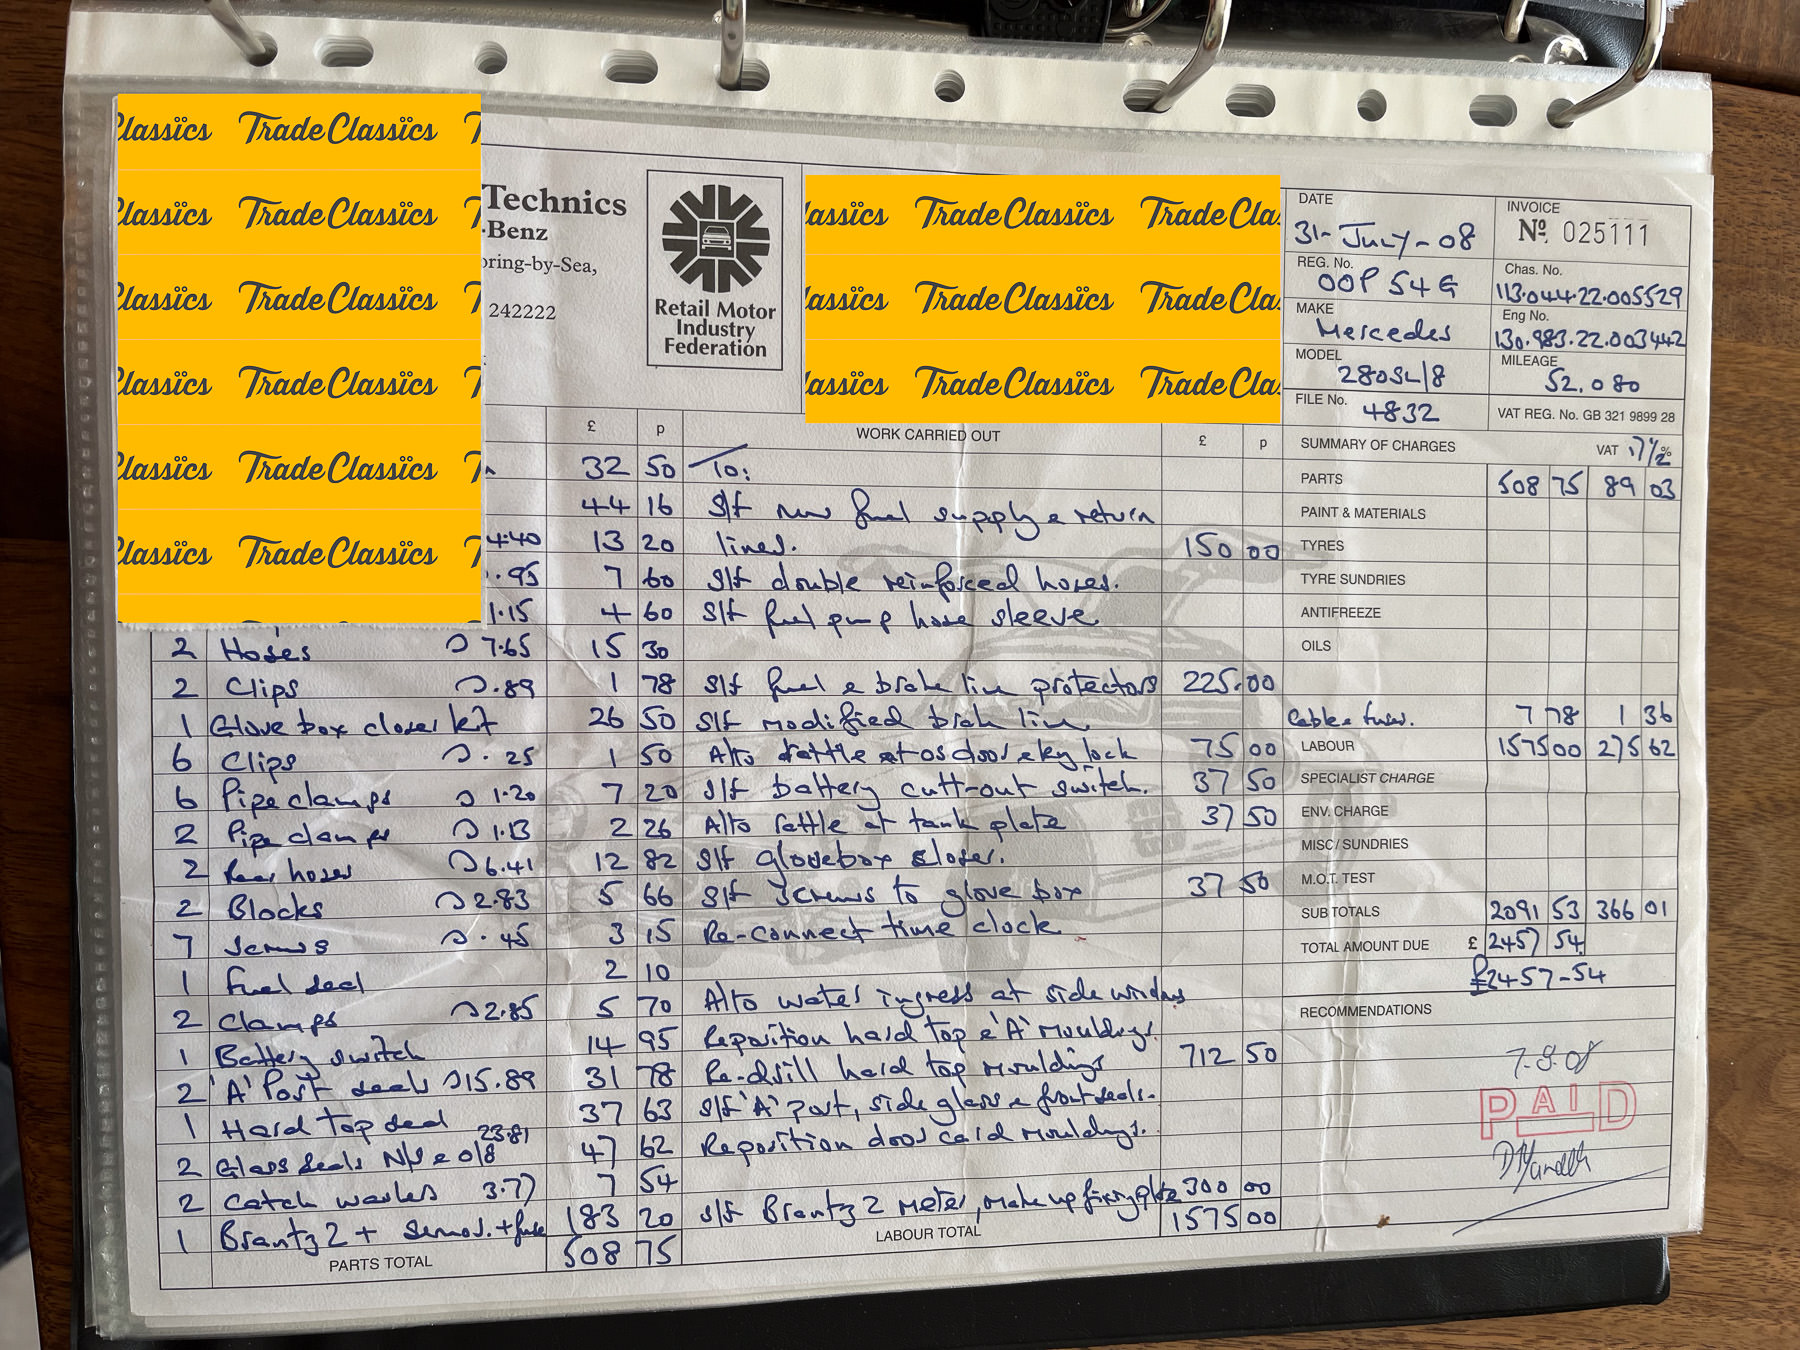 Classics TradeClassics T
Classics TradeClassics T
Classics TradeClassics
Classics TradeClassics
Classics TradeClassics
Classics TradeClassics
Technics
-Benz
oring-by-Sea,
242222
Retail Motor
Industry
Federation
lassics TradeClassics TradeCla
lassics TradeClassics TradeCla
lassics TradeClassics TradeCla
DATE
31-July-08
INVOICE
№ 025111
REG. No.
OOP 54G
Chas. No.
113.044.22.005529
MAKE
Mercedes
Eng No.
130.983.22.003442
MODEL
280SL/8
MILEAGE
52.080
FILE No.
4832
VAT REG. No. GB 321 9899 28
£ p WORK CARRIED OUT £ p
32 50 To:
44 16 S/f new fuel supply & return
4.40 13 20 lines. 150 00
.95 7 60 S/f double reinforced hoses.
1.15 4 60 S/f fuel pump hose sleeve
2 Hoses 7.65 15 30
2 Clips .89 1 78 S/f fuel & brake line protectors 225.00
1 Glove box closer kit 26 50 S/f modified brake line
6 Clips .25 1 50 Atto rattle at os door & ky lock 75 00
6 Pipe clamps 1.20 7 20 S/f battery cutt-out switch. 37 50
2 Pipe clamps 1.13 2 26 Atto rattle at tank plate 37 50
2 Rear hoses 6.41 12 82 S/f glovebox closer.
2 Blocks 2.83 5 66 S/f screws to glove box 37 50
7 Screws .45 3 15 Re-connect time clock
1 Fuel seal 2 10
2 Clamps 2.85 5 70 Atto water ingress at side windows
1 Battery switch 14 95 Reposition hard top & 'A' mouldings.
2 'A' Post seals 15.89 31 78 Re-drill hard top mouldings 712 50
1 Hard top seal 37 63 S/f 'A' post, side glass & front seals.
2 Glass seals N/S & O/S 23.81 47 62 Reposition door card mouldings.
2 Catch washes 3.77 7 54
1 Brantz 2 + sensor. + fuse 183 20 S/f Brantz 2 meter, make up fixing plate 300 00
PARTS TOTAL 508 75 LABOUR TOTAL 1575 00
SUMMARY OF CHARGES VAT 17½%
PARTS 508 75 89 03
PAINT & MATERIALS
TYRES
TYRE SUNDRIES
ANTIFREEZE
OILS
Cable & fuses. 7 78 1 36
LABOUR 1575 00 275 62
SPECIALIST CHARGE
ENV. CHARGE
MISC/SUNDRIES
M.O.T. TEST
SUB TOTALS 2091 53 366 01
TOTAL AMOUNT DUE £ 2457 54
£2457-54
RECOMMENDATIONS
7.8.08
PAID